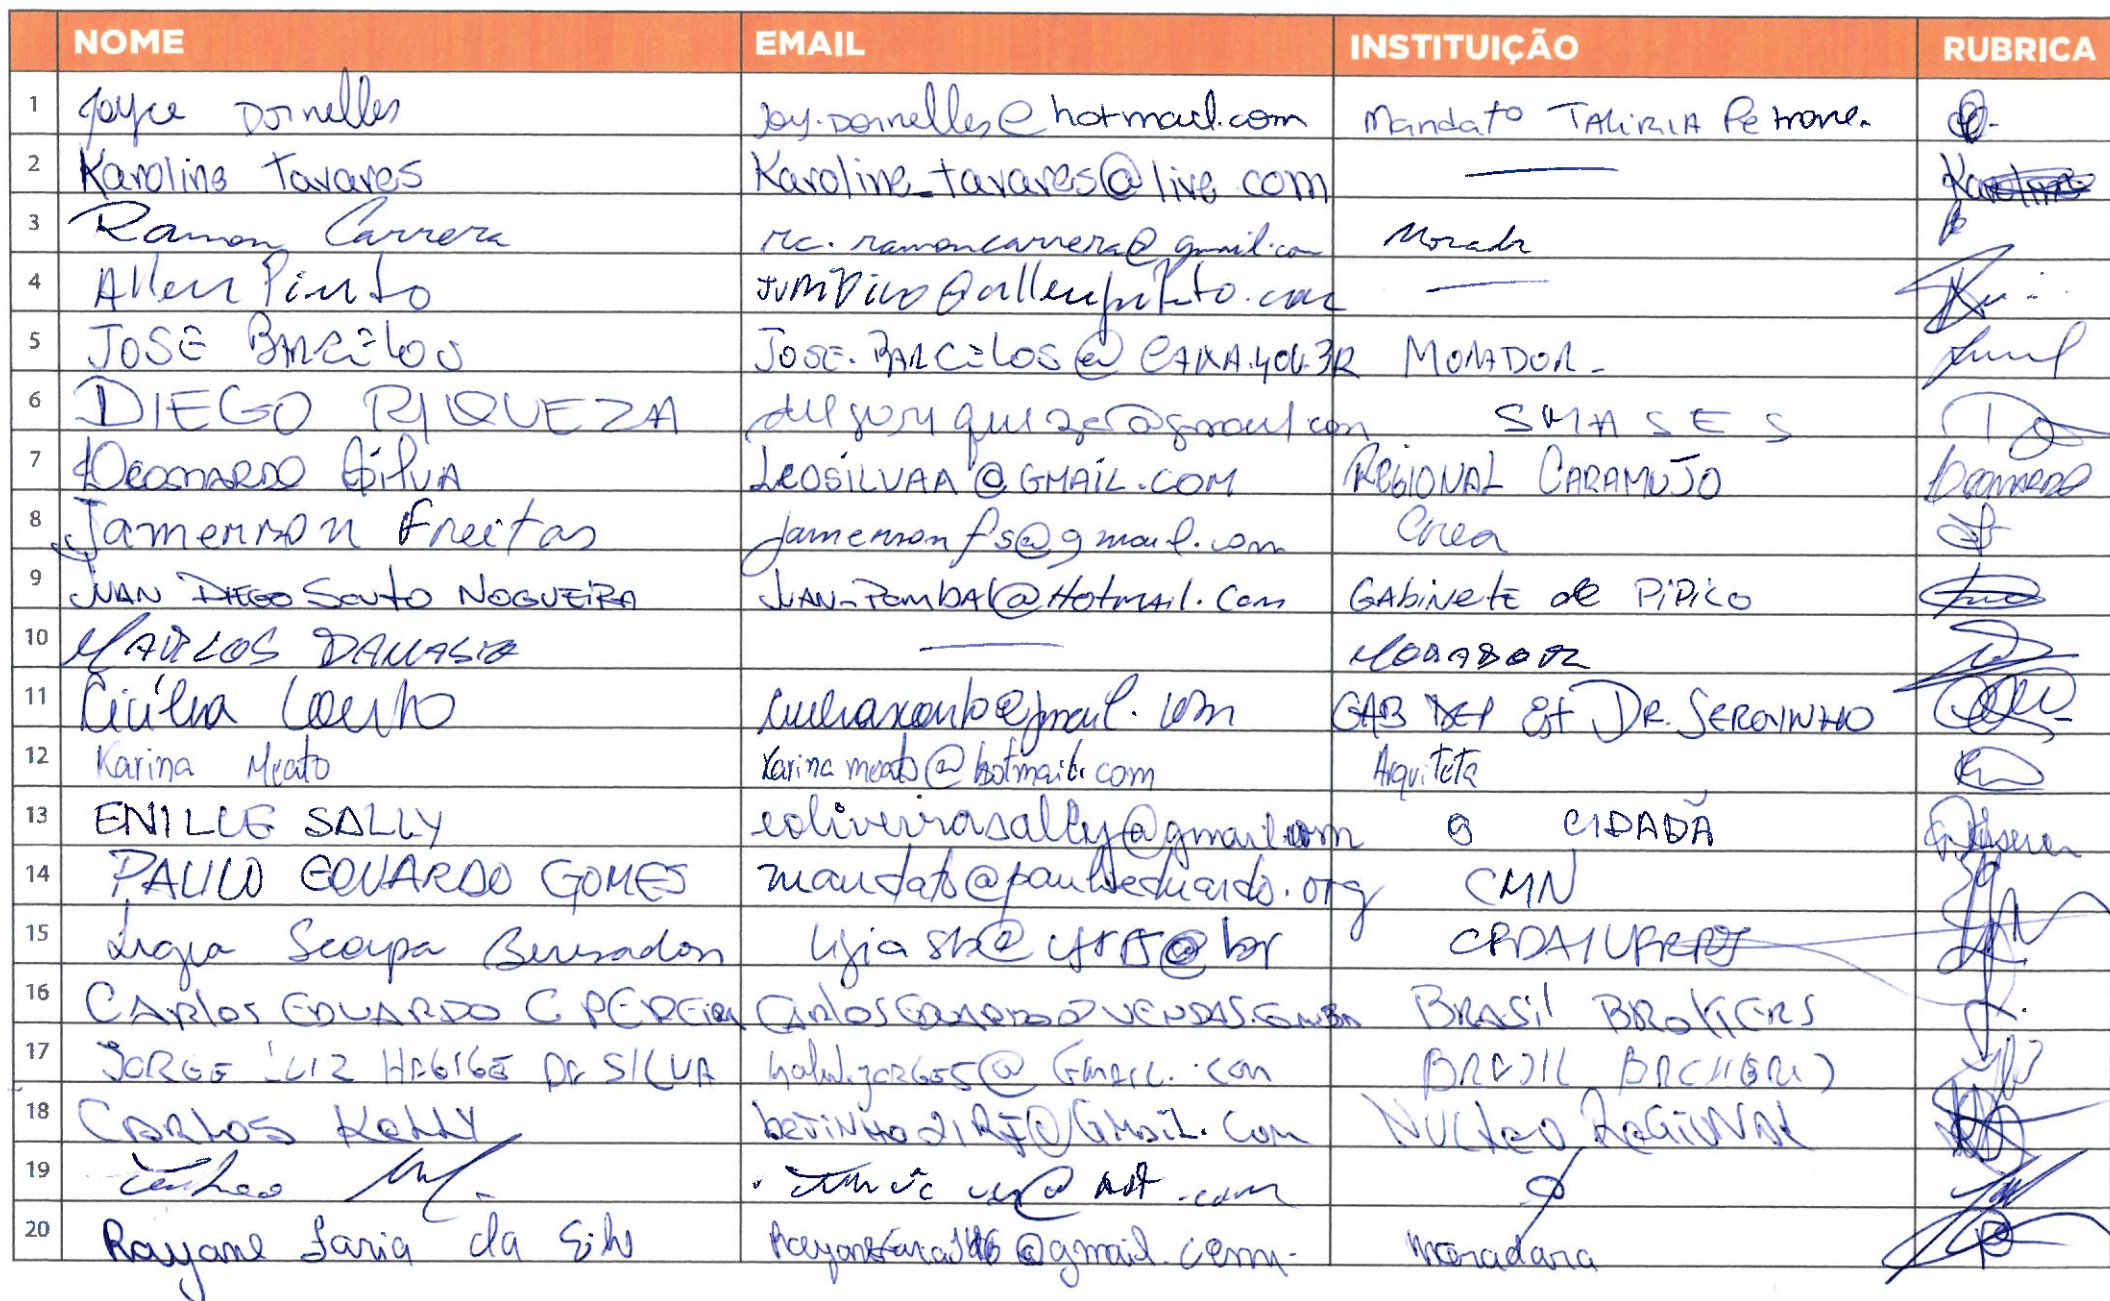 NOME EMAIL INSTITUIÇÃO RUBRICA
1 Joyce Dornelles joy.dornelles@hotmail.com Mandato TALIRIA Petrone.
2 Karoline Tavares Karoline_tavares@live.com — Karoline
3 Ramon Carrera rc.ramoncarrera@gmail.com Morador
4 Allen Pinto @allenpinto.com —
5 JOSÉ BARCELOS JOSE.BARCELOS@CAIXA.GOV.BR MORADOR-
6 DIEGO RIQUEZA diegoriqueza@gmail.com SMASES
7 LEONARDO SILVA LEOSILVAA@GMAIL.COM REGIONAL CARAMUJO Leonardo
8 Jamerson Freitas jamersonfs@gmail.com Crea
9 JUAN DIEGO Souto NOGUEIRA JUAN-POMBAL@HotmAil.Com GAbiNete de PiPico
10 MARCOS DAMASIO — MORADOR
11 Cicília Couto GAB DEP Est DR. SERGINHO
12 Karina Meato Karinameato@hotmail.com Arquiteta
13 ENILCE SALLY eoliveirasally@gmail.com CIDADÃ
14 PAULO EDUARDO GOMES mandato@pauloeduardo.org CMN
15 Scarpa
16 CARlos EDUARDO C PEREIRA BRASil BROKERS
17 JORGE LUIZ DA SILVA BRASIL BROKERS
18 CARLOS KELLY betinho21RJ@GMAIL.Com NUCLEO REGIONAL
19
20 Rayane Faria da Silv @gmail.com moradora